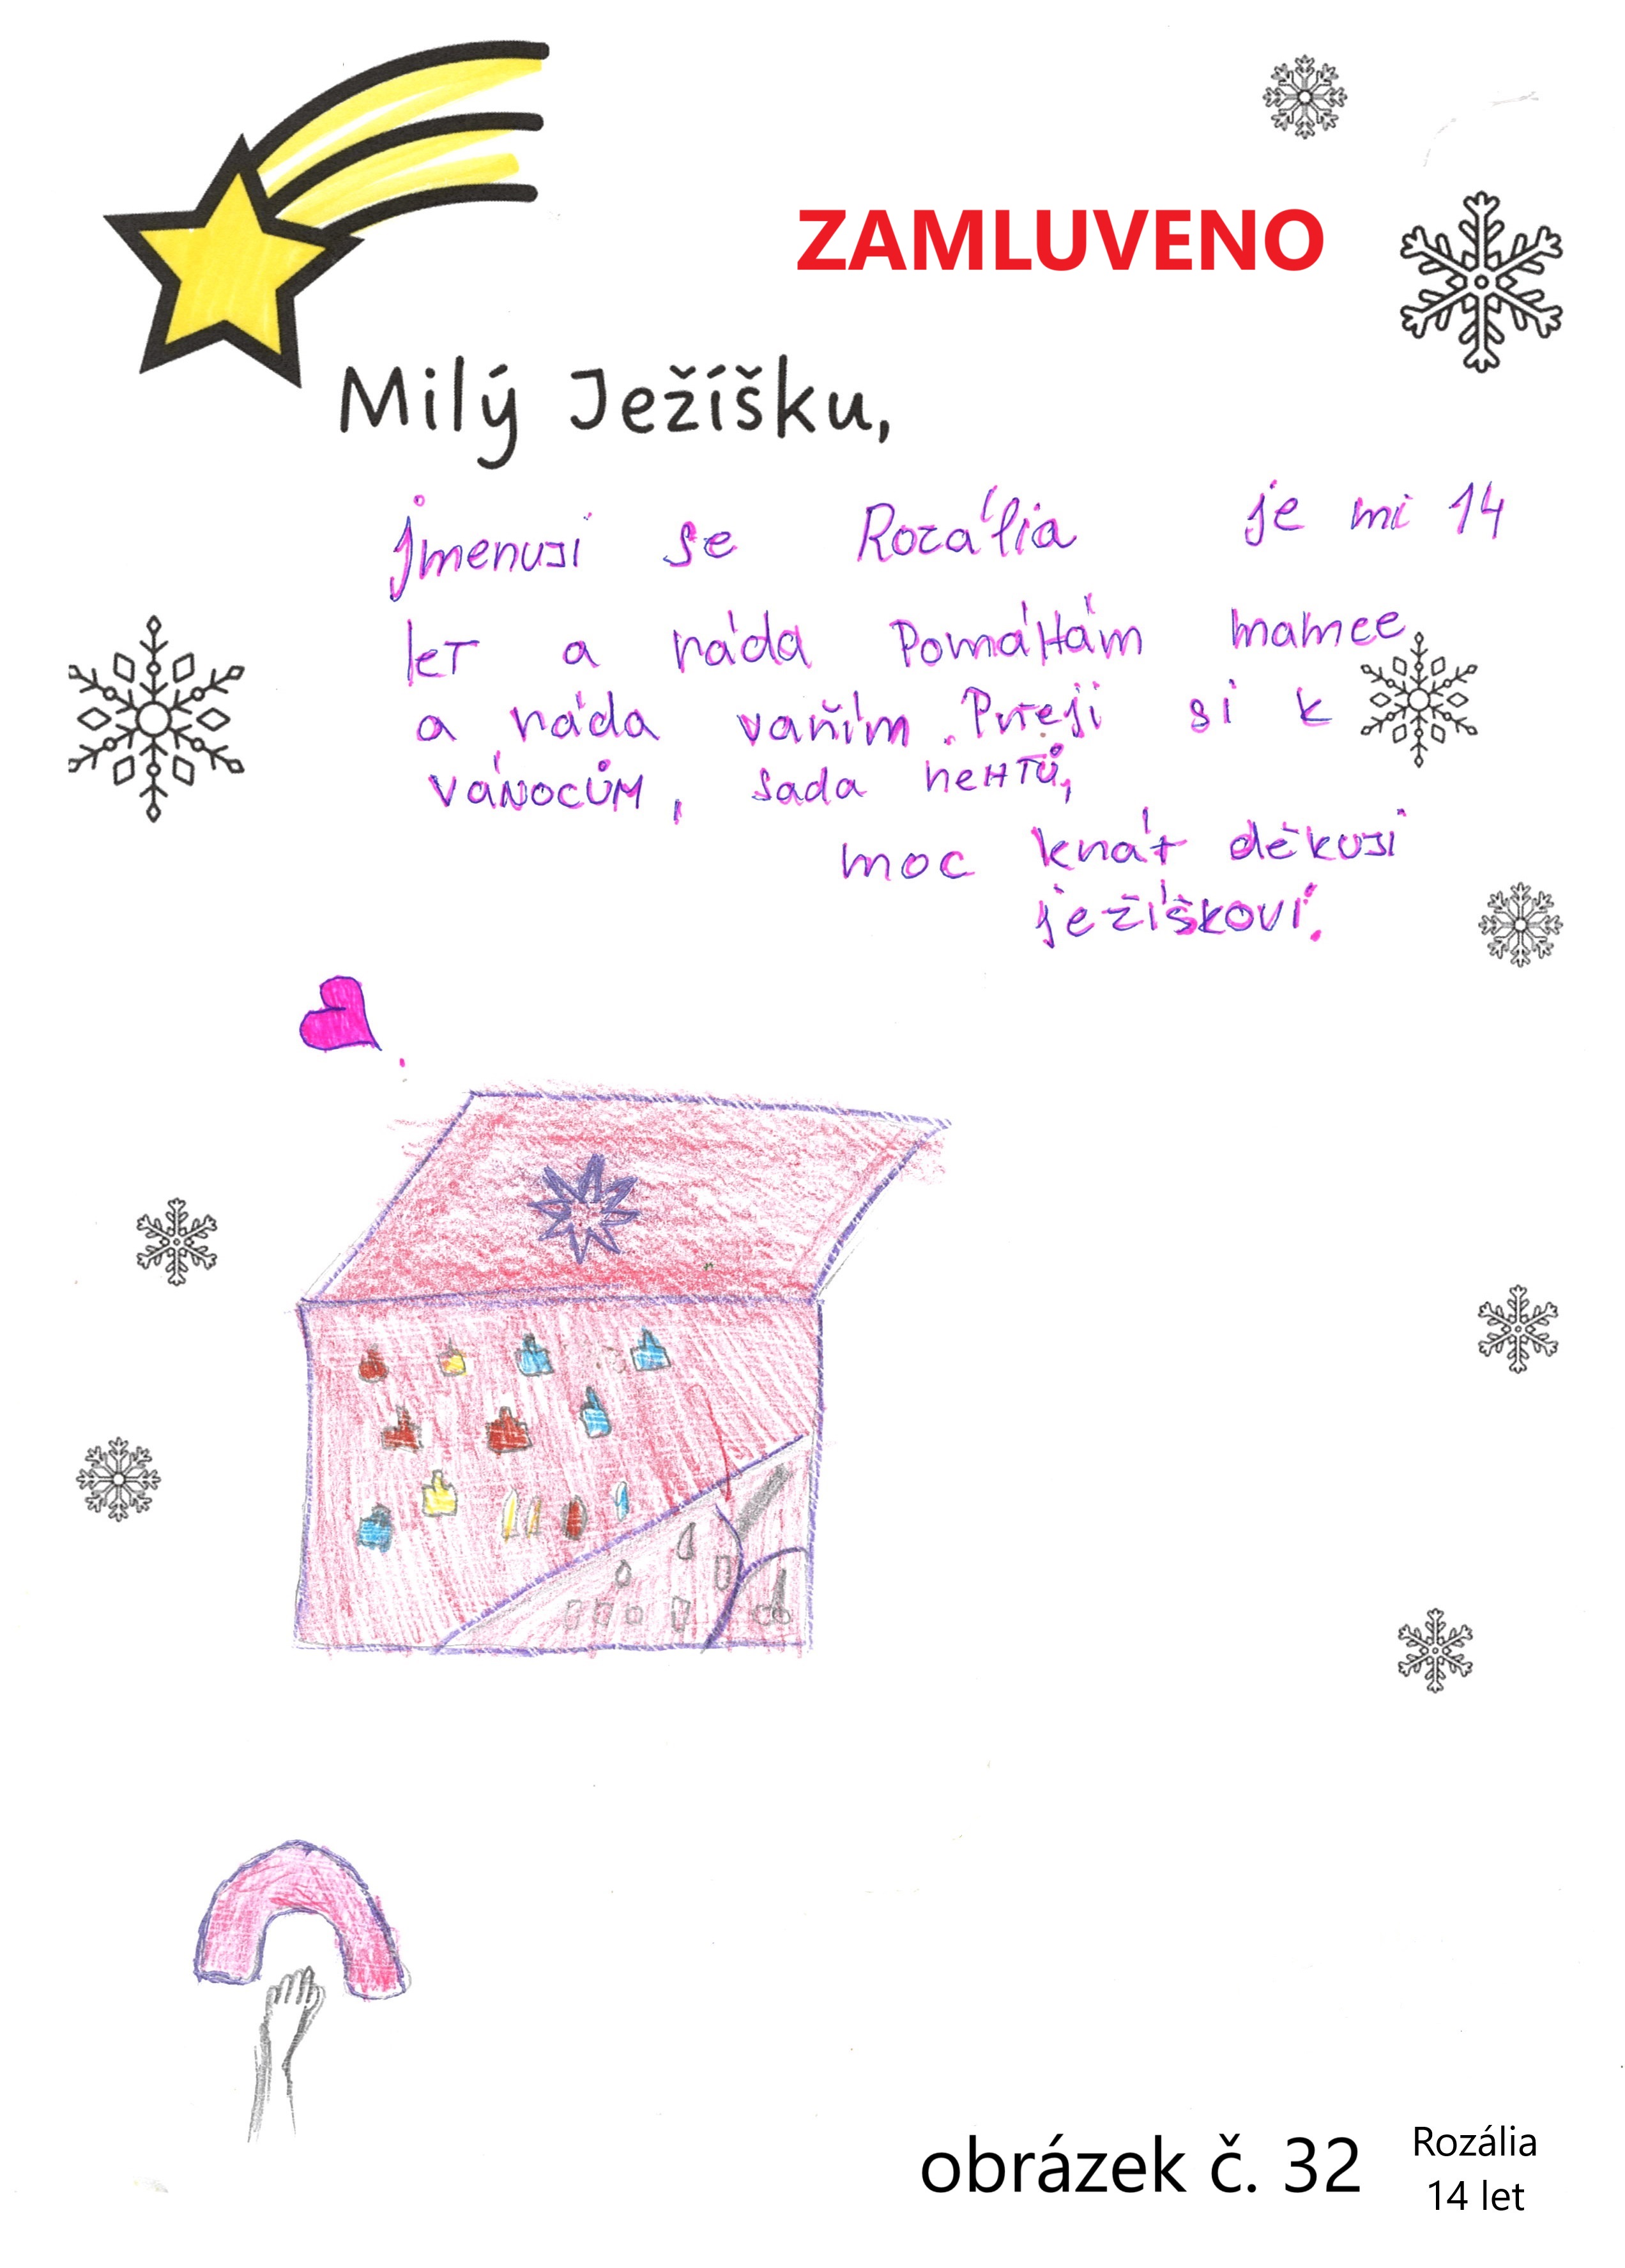 ZAMLUVENO
Milý Ježíšku,
jmenuji se Rozália je mi 14
let a ráda PomáHám mamce
a ráda vařím. Přeji si k
VÁNOCŮM, sada neHTŮ,
moc krát děkuji
ježíškovi.
obrázek č. 32
Rozália
14 let